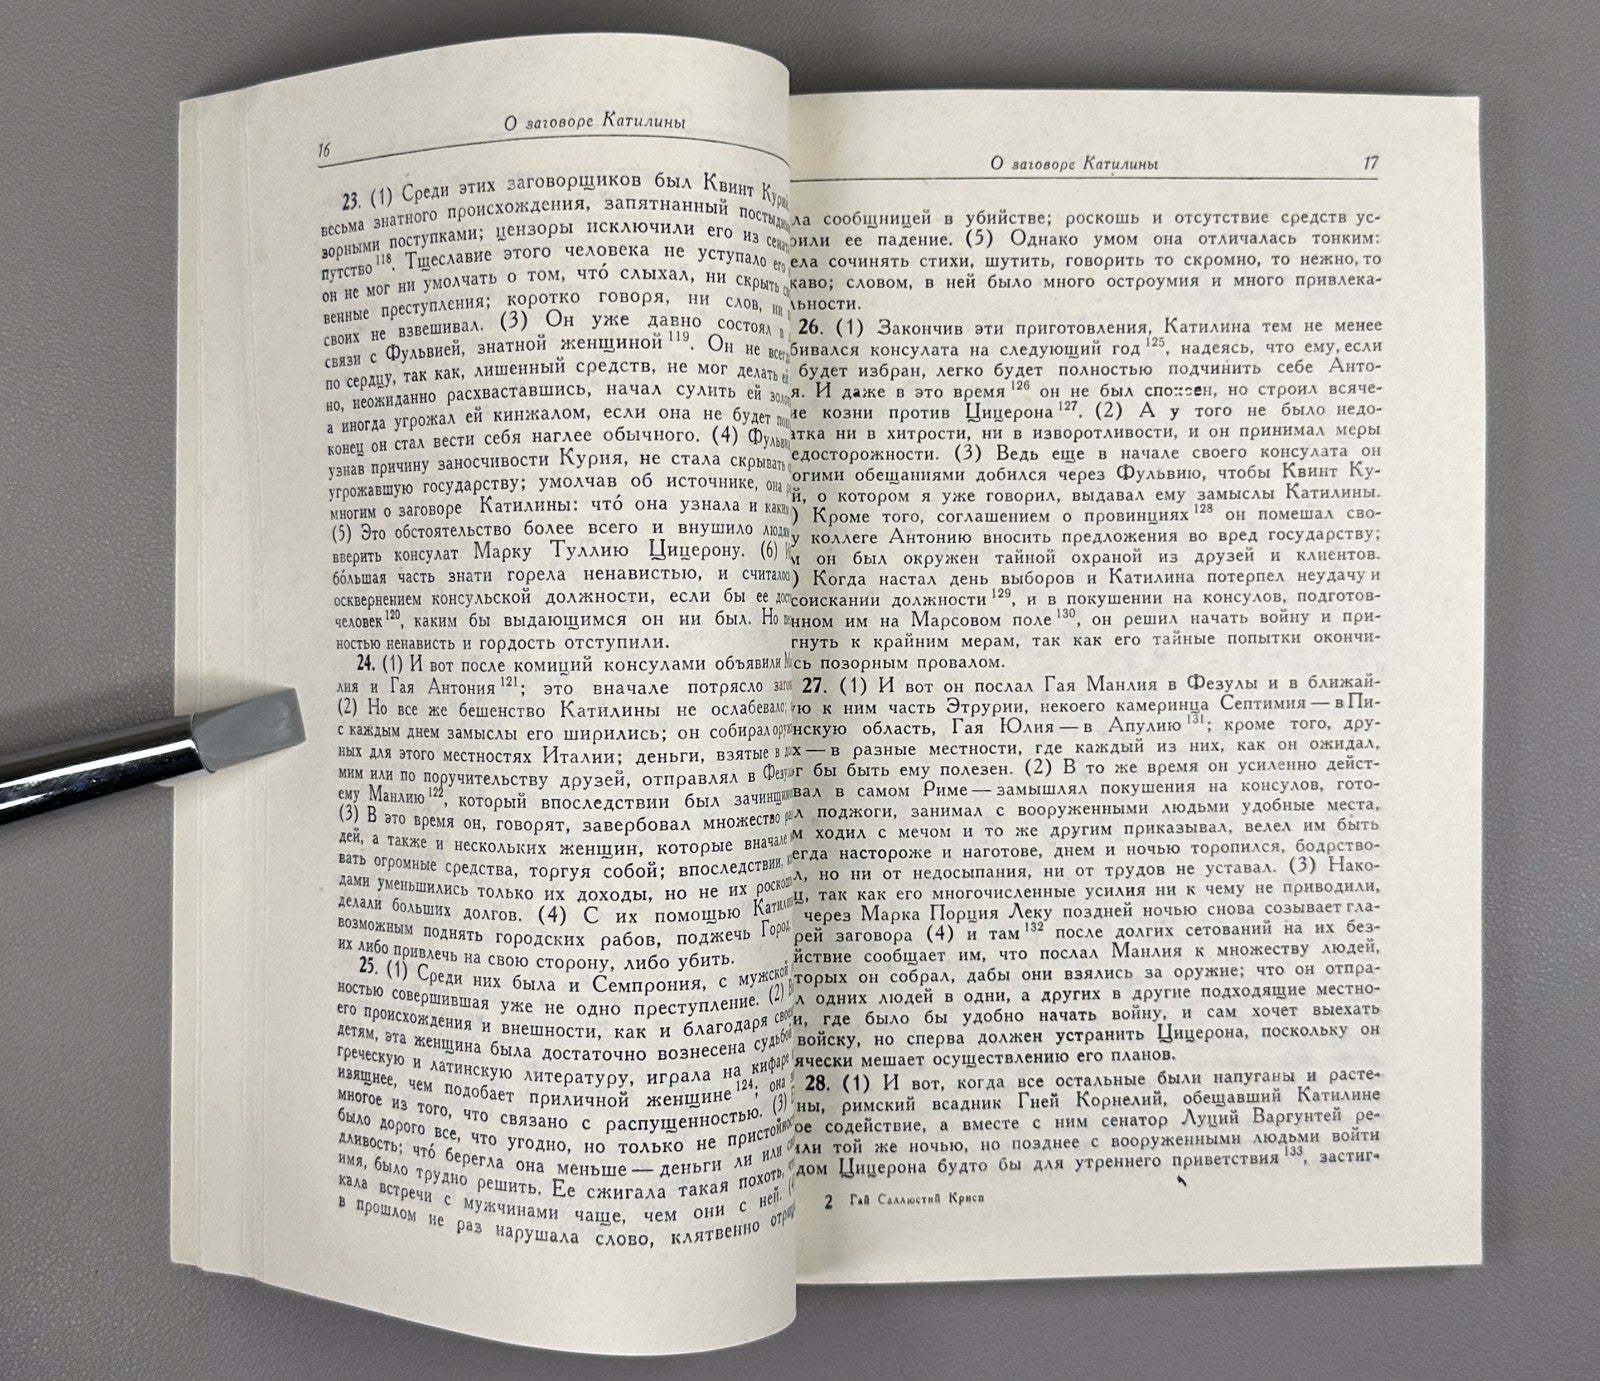 О заговоре Катилины
16
23. (1) Среди этих заговорщиков был Квинт
весьма знатного происхождения, запятнанный
зорными поступками; цензоры исключили его из
путство 118. Тщеславие этого человека не уступало его
он не мог ни умолчать о том, что́ слыхал, ни скрыть
венные преступления; коротко говоря, ни слов, ни
своих не взвешивал. (3) Он уже давно состоял в
связи с Фульвией, знатной женщиной 119. Он не
по сердцу, так как, лишенный средств, не мог делать
но, неожиданно расхваставшись, начал сулить ей
а иногда угрожал ей кинжалом, если она не будет
конец он стал вести себя наглее обычного. (4)
узнав причину заносчивости Курия, не стала скрывать
угрожавшую государству; умолчав об источнике, она
многим о заговоре Катилины: что́ она узнала и
(5) Это обстоятельство более всего и внушило
вверить консулат Марку Туллию Цицерону. (6)
бо́льшая часть знати горела ненавистью, и
осквернением консульской должности, если бы ее
человек 120, каким бы выдающимся он ни был. Но
ностью ненависть и гордость отступили.
24. (1) И вот после комиций консулами объявили
лия и Гая Антония 121; это вначале потрясло
(2) Но все же бешенство Катилины не ослабевало;
с каждым днем замыслы его ширились; он собирал
ных для этого местностях Италии; деньги, взятые в
мим или по поручительству друзей, отправлял в
ему Манлию 122, который впоследствии был
(3) В это время он, говорят, завербовал множество
дей, а также и нескольких женщин, которые вначале
вать огромные средства, торгуя собой; впоследствии,
дами уменьшились только их доходы, но не их
делали больших долгов. (4) С их помощью
возможным поднять городских рабов, поджечь Город,
их либо привлечь на свою сторону, либо убить.
25. (1) Среди них была и Семпрония, с мужской
ностью совершившая уже не одно преступление. (2)
его происхождения и внешности, как и благодаря
детям, эта женщина была достаточно вознесена судьбой
греческую и латинскую литературу, играла на кифаре
изящнее, чем подобает приличной женщине 124; она
многое из того, что связано с распущенностью. (3)
было дорого все, что угодно, но только не
дливость; что́ берегла она меньше — деньги ли или
имя, было трудно решить. Ее сжигала такая похоть,
кала встречи с мужчинами чаще, чем они с ней.
в прошлом не раз нарушала слово, клятвенно
О заговоре Катилины
17
ла сообщницей в убийстве; роскошь и отсутствие средств ус-
рили ее падение. (5) Однако умом она отличалась тонким:
ела сочинять стихи, шутить, говорить то скромно, то нежно, то
каво; словом, в ней было много остроумия и много привлека-
льности.
26. (1) Закончив эти приготовления, Катилина тем не менее
бивался консулата на следующий год 125, надеясь, что ему, если
будет избран, легко будет полностью подчинить себе Анто-
я. И даже в это время 126 он не был спокоен, но строил всяче-
ие козни против Цицерона 127. (2) А у того не было недо-
атка ни в хитрости, ни в изворотливости, и он принимал меры
едосторожности. (3) Ведь еще в начале своего консулата он
огими обещаниями добился через Фульвию, чтобы Квинт Ку-
й, о котором я уже говорил, выдавал ему замыслы Катилины.
) Кроме того, соглашением о провинциях 128 он помешал сво-
у коллеге Антонию вносить предложения во вред государству;
м он был окружен тайной охраной из друзей и клиентов.
) Когда настал день выборов и Катилина потерпел неудачу и
соискании должности 129, и в покушении на консулов, подготов-
нном им на Марсовом поле 130, он решил начать войну и при-
гнуть к крайним мерам, так как его тайные попытки окончи-
сь позорным провалом.
27. (1) И вот он послал Гая Манлия в Фезулы и в ближай-
ю к ним часть Этрурии, некоего камеринца Септимия — в Пи-
нскую область, Гая Юлия — в Апулию 131; кроме того, дру-
х — в разные местности, где каждый из них, как он ожидал,
г бы быть ему полезен. (2) В то же время он усиленно дейст-
вал в самом Риме — замышлял покушения на консулов, гото-
л поджоги, занимал с вооруженными людьми удобные места,
м ходил с мечом и то же другим приказывал, велел им быть
егда настороже и наготове, днем и ночью торопился, бодрство-
л, но ни от недосыпания, ни от трудов не уставал. (3) Нако-
ц, так как его многочисленные усилия ни к чему не приводили,
через Марка Порция Леку поздней ночью снова созывает гла-
рей заговора (4) и там 132 после долгих сетований на их без-
йствие сообщает им, что послал Манлия к множеству людей,
торых он собрал, дабы они взялись за оружие; что он отпра-
л одних людей в одни, а других в другие подходящие местно-
и, где было бы удобно начать войну, и сам хочет выехать
войску, но сперва должен устранить Цицерона, поскольку он
ячески мешает осуществлению его планов.
28. (1) И вот, когда все остальные были напуганы и расте-
ны, римский всадник Гней Корнелий, обещавший Катилине
ое содействие, а вместе с ним сенатор Луций Варгунтей ре-
или той же ночью, но позднее с вооруженными людьми войти
дом Цицерона будто бы для утреннего приветствия 133, застиг-
2 Гай Саллюстий Крисп